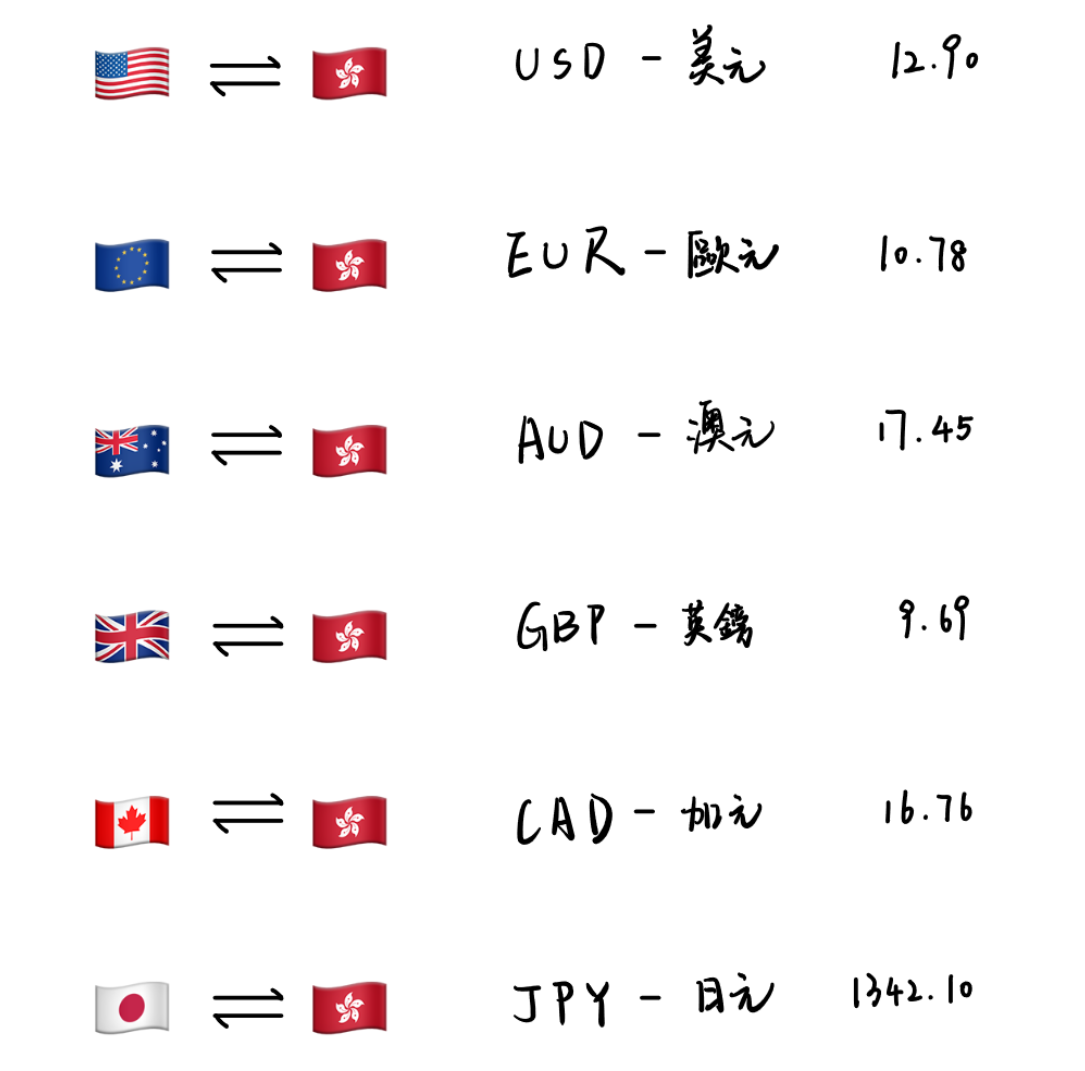 USD - 美元 12.90
EUR - 歐元 10.78
AUD - 澳元 17.45
GBP - 英鎊 9.69
CAD - 加元 16.76
JPY - 日元 1342.10